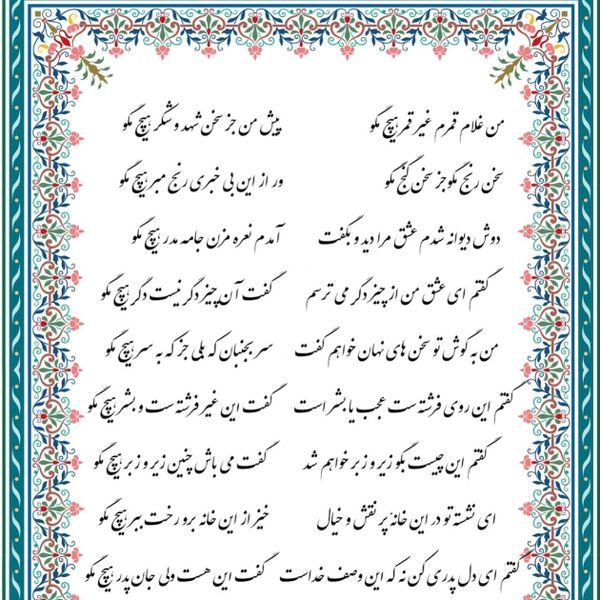 من غلام قمرم غیر قمر هیچ مگو پیش من جز سخن شهد و شکر هیچ مگو
سخن رنج مگو جز سخن گنج مگو ور از این بی خبری رنج مبر هیچ مگو
دوش دیوانه شدم عشق مرا دید و بگفت آمدم نعره مزن جامه مدر هیچ مگو
گفتم ای عشق من از چیز دگر می ترسم گفت آن چیز دگر نیست دگر هیچ مگو
من به گوش تو سخن های نهان خواهم گفت سر بجنبان که بلی جز که به سر هیچ مگو
گفتم این روی فرشته ست عجب یا بشر است گفت این غیر فرشته ست و بشر هیچ مگو
گفتم این چیست بگو زیر و زبر خواهم شد گفت می باش چنین زیر و زبر هیچ مگو
ای نشسته تو در این خانهٔ پر نقش و خیال خیز از این خانه برو رخت ببر هیچ مگو
گفتم ای دل پدری کن نه که این وصف خداست گفت این هست ولی جان پدر هیچ مگو